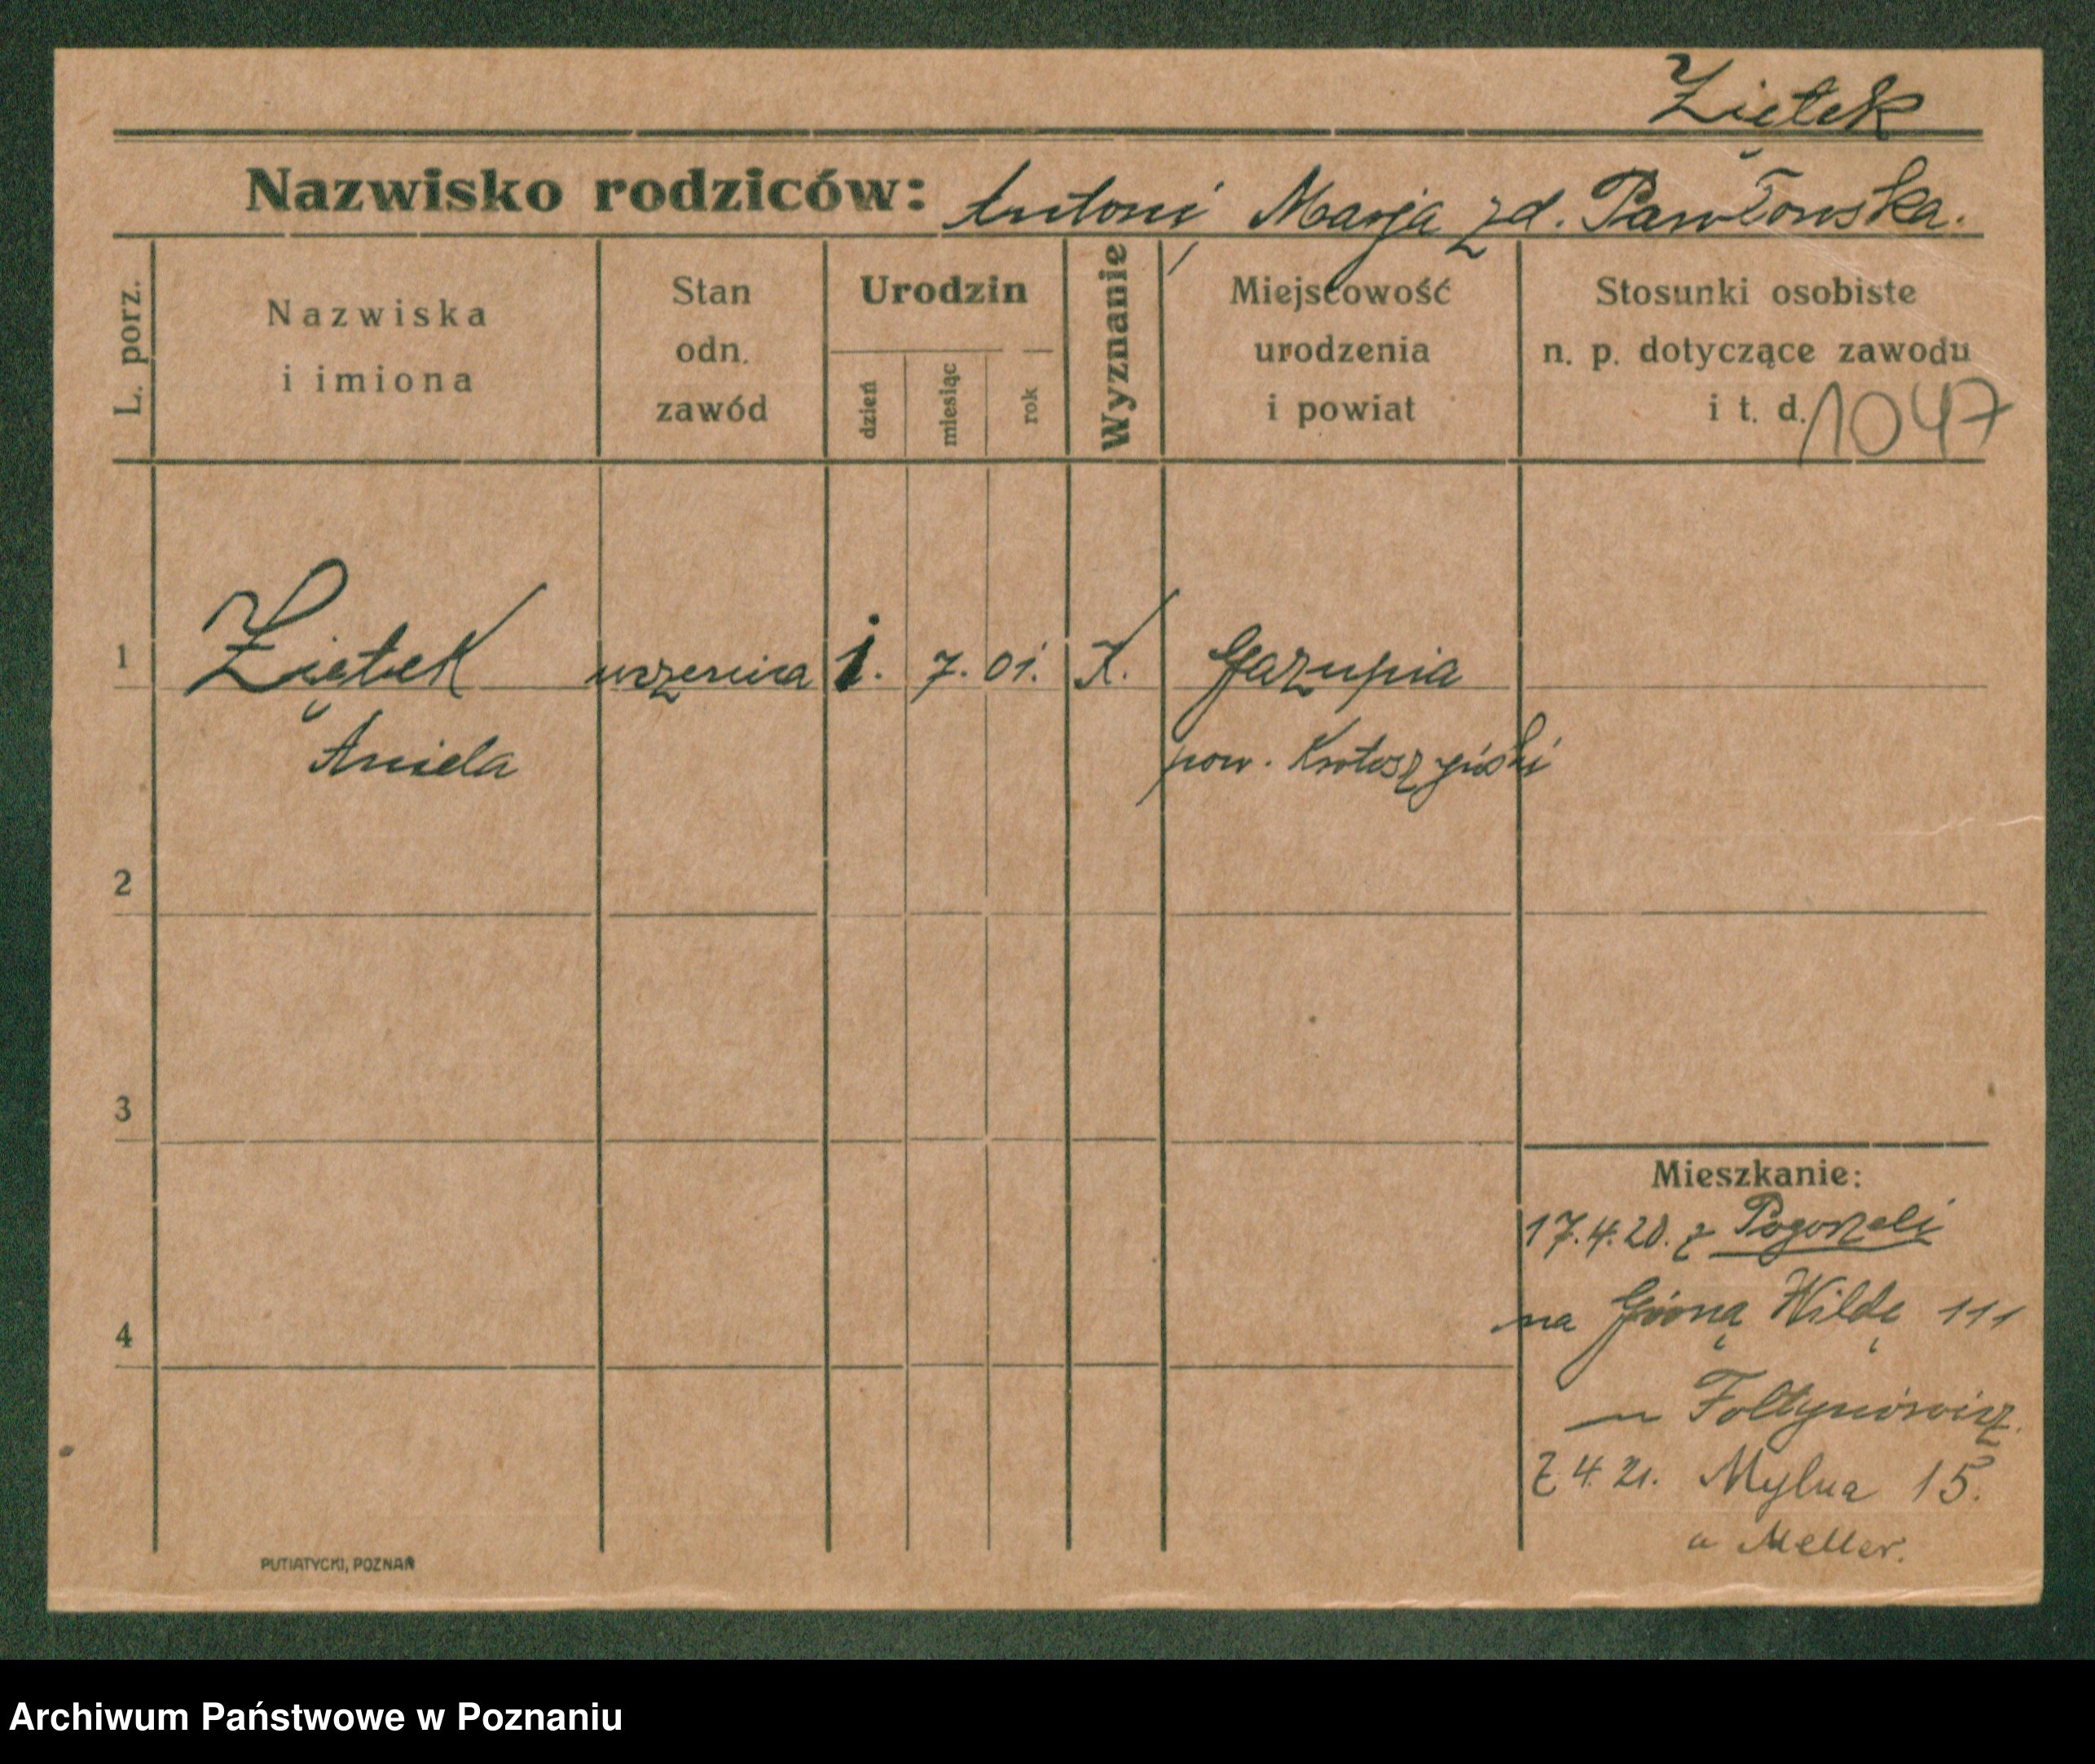 Ziętek
Nazwisko rodziców: Antoni Marja zd. Pawłowska.
L. porz.
Nazwiska
i imiona
Stan
odn.
zawód
Urodzin
dzień
miesiąc
rok
Wyznanie
Miejscowość
urodzenia
i powiat
Stosunki osobiste
n. p. dotyczące zawodu
i t. d.
1047
1 Ziętek uczenica 1. 7. 01. K. Gazupia
Aniela pow. Krotoszyński
2
3
4
Mieszkanie:
17.4.20. z Pogorzeli
na Górną Wildę 111
u Foltynowicz.
2 4. 21. Mylna 15.
u Meller.
PUTIATYCKI, POZNAŃ
Archiwum Państwowe w Poznaniu